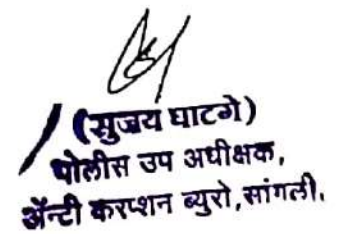 (सुजय घाटगे)
पोलीस उप अधीक्षक,
ॲन्टी करप्शन ब्युरो,सांगली.